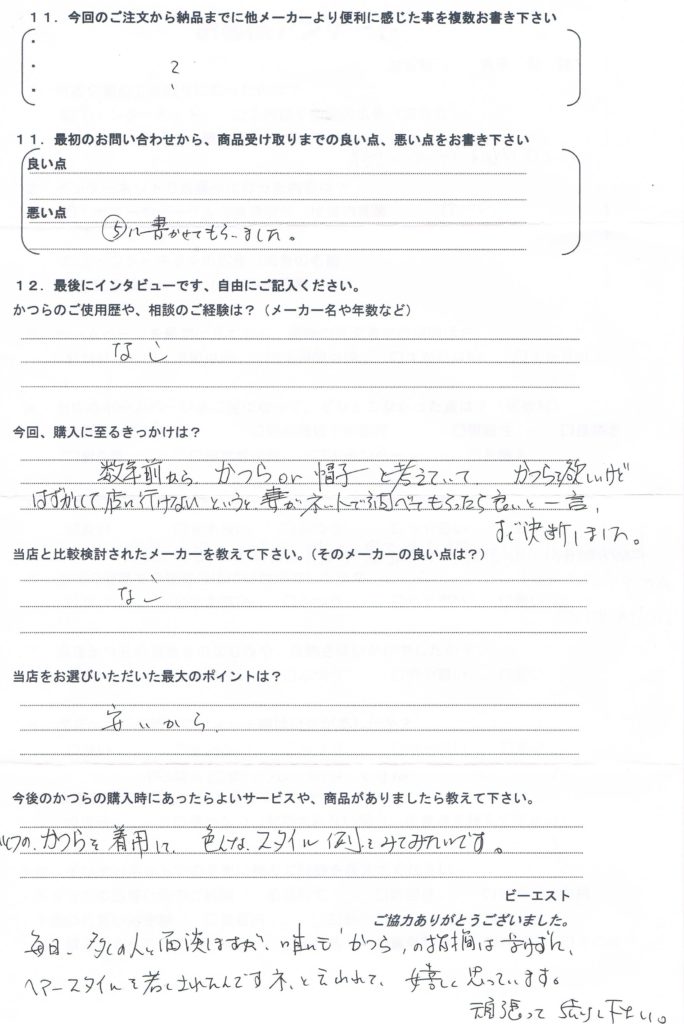 １１．今回のご注文から納品までに他メーカーより便利に感じた事を複数お書き下さい
・
・
・
１１．最初のお問い合わせから、商品受け取りまでの良い点、悪い点をお書き下さい
良い点
悪い点
⑤に書かせてもらいました。
１２．最後にインタビューです、自由にご記入ください。
かつらのご使用歴や、相談のご経験は？（メーカー名や年数など）
なし
今回、購入に至るきっかけは？
数年前から、かつらor 帽子と考えていて、かつらを欲しいけど
はずかしくて店に行けないというと、妻がネットで調べてもらったら良いと一言、
すぐ決断しました。
当店と比較検討されたメーカーを教えて下さい。（そのメーカーの良い点は？）
なし
当店をお選びいただいた最大のポイントは？
安いから、
今後のかつらの購入時にあったらよいサービスや、商品がありましたら教えて下さい。
かつらを着用して、色んなスタイル例をみてみたいです。
ビーエスト
ご協力ありがとうございました。
毎日、多くの人と面談しますが、唯も「かつら」の指摘は
ヘアースタイルを若くされたんですネ、と言われて、嬉しく思っています。
頑張って続けて下さい。